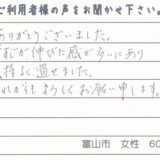 ご利用者様の声をお聞かせ下さい。
ありがとうございました。
が伸びた感が多いにあり
持よく過せました。
よろしくお願い申します。
富山市 女性 60